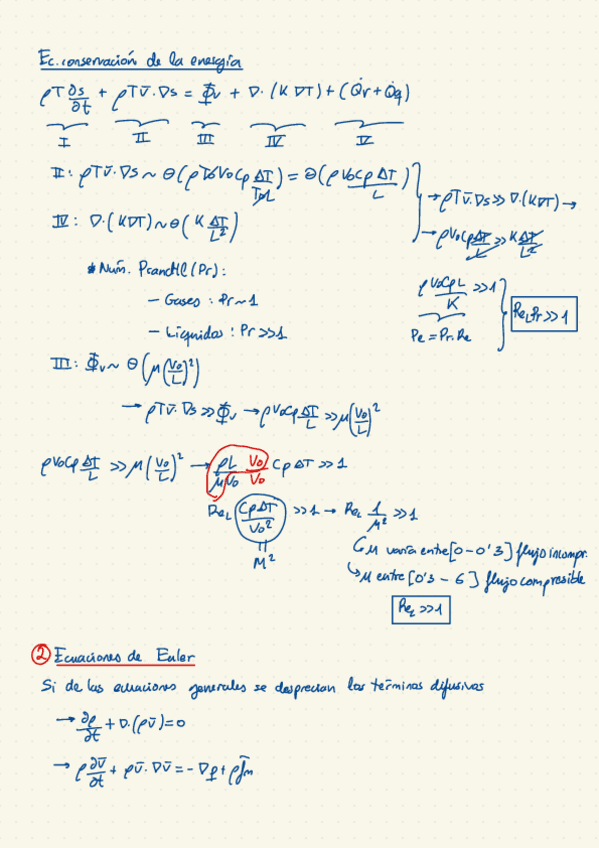 Ec. conservación de la energía
ρT ∂s/∂t + ρT v̄·∇s = Φ̄v + ∇·(K∇T) + (Q̇r + Q̇q)
I II III IV IV
II: ρT v̄·∇s ~ θ(ρ T₀V₀Cp ΔT/T₀L) = θ(ρ V₀Cp ΔT/L)
→ ρT v̄·∇s >> ∇·(K∇T) →
IV: ∇·(K∇T) ~ θ(K ΔT/L²)
→ ρV₀Cp ΔT/L >> K ΔT/L²
* Núm. Prandtl (Pr):
– Gases: Pr ~ 1
– Líquidos: Pr >> 1
ρV₀CpL/K >> 1
Pe = Pr·Re
Re_L Pr >> 1
III: Φ̄v ~ θ(μ(V₀/L)²)
→ ρT v̄·∇s >> Φ̄v → ρV₀Cp ΔT/L >> μ(V₀/L)²
ρV₀Cp ΔT/L >> μ(V₀/L)² → ρL/μV₀ V₀/V₀ Cp ΔT >> 1
Re_L CpΔT/V₀² >> 1 → Re_L 1/M² >> 1
M²
M varía entre [0 – 0'3] flujo incompr.
↳ M entre [0'3 – 6] flujo compresible
Re_L >> 1
② Ecuaciones de Euler
Si de las ecuaciones generales se desprecian los términos difusivos
→ ∂ρ/∂t + ∇·(ρv̄) = 0
→ ρ ∂v̄/∂t + ρv̄·∇v̄ = -∇p + ρf̄m